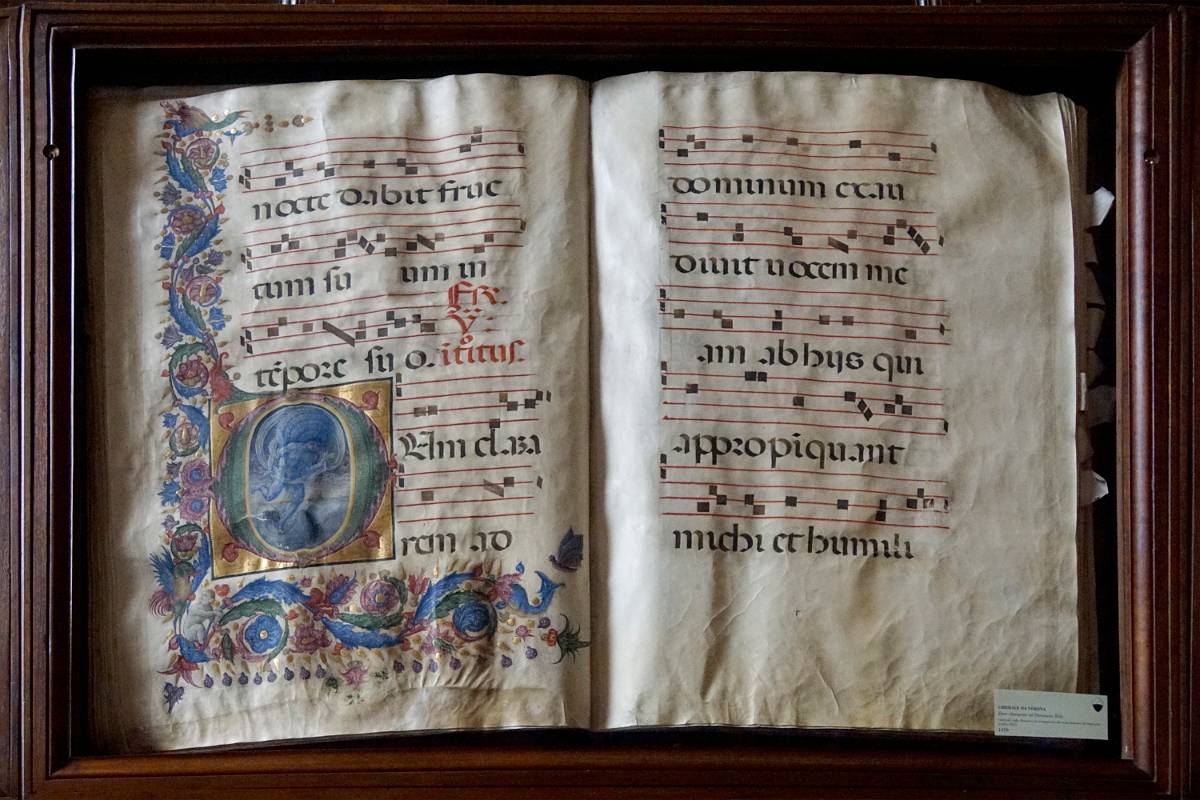 nocte dabit fruc
tum su um in
Fer.
V.
tēpore su o. itͦitus.
DUm clama
rem ad
dominum exau
diuit uocem me
am ab hijs qui
appropīquant
michi et humili
LIBERALE DA VERONA